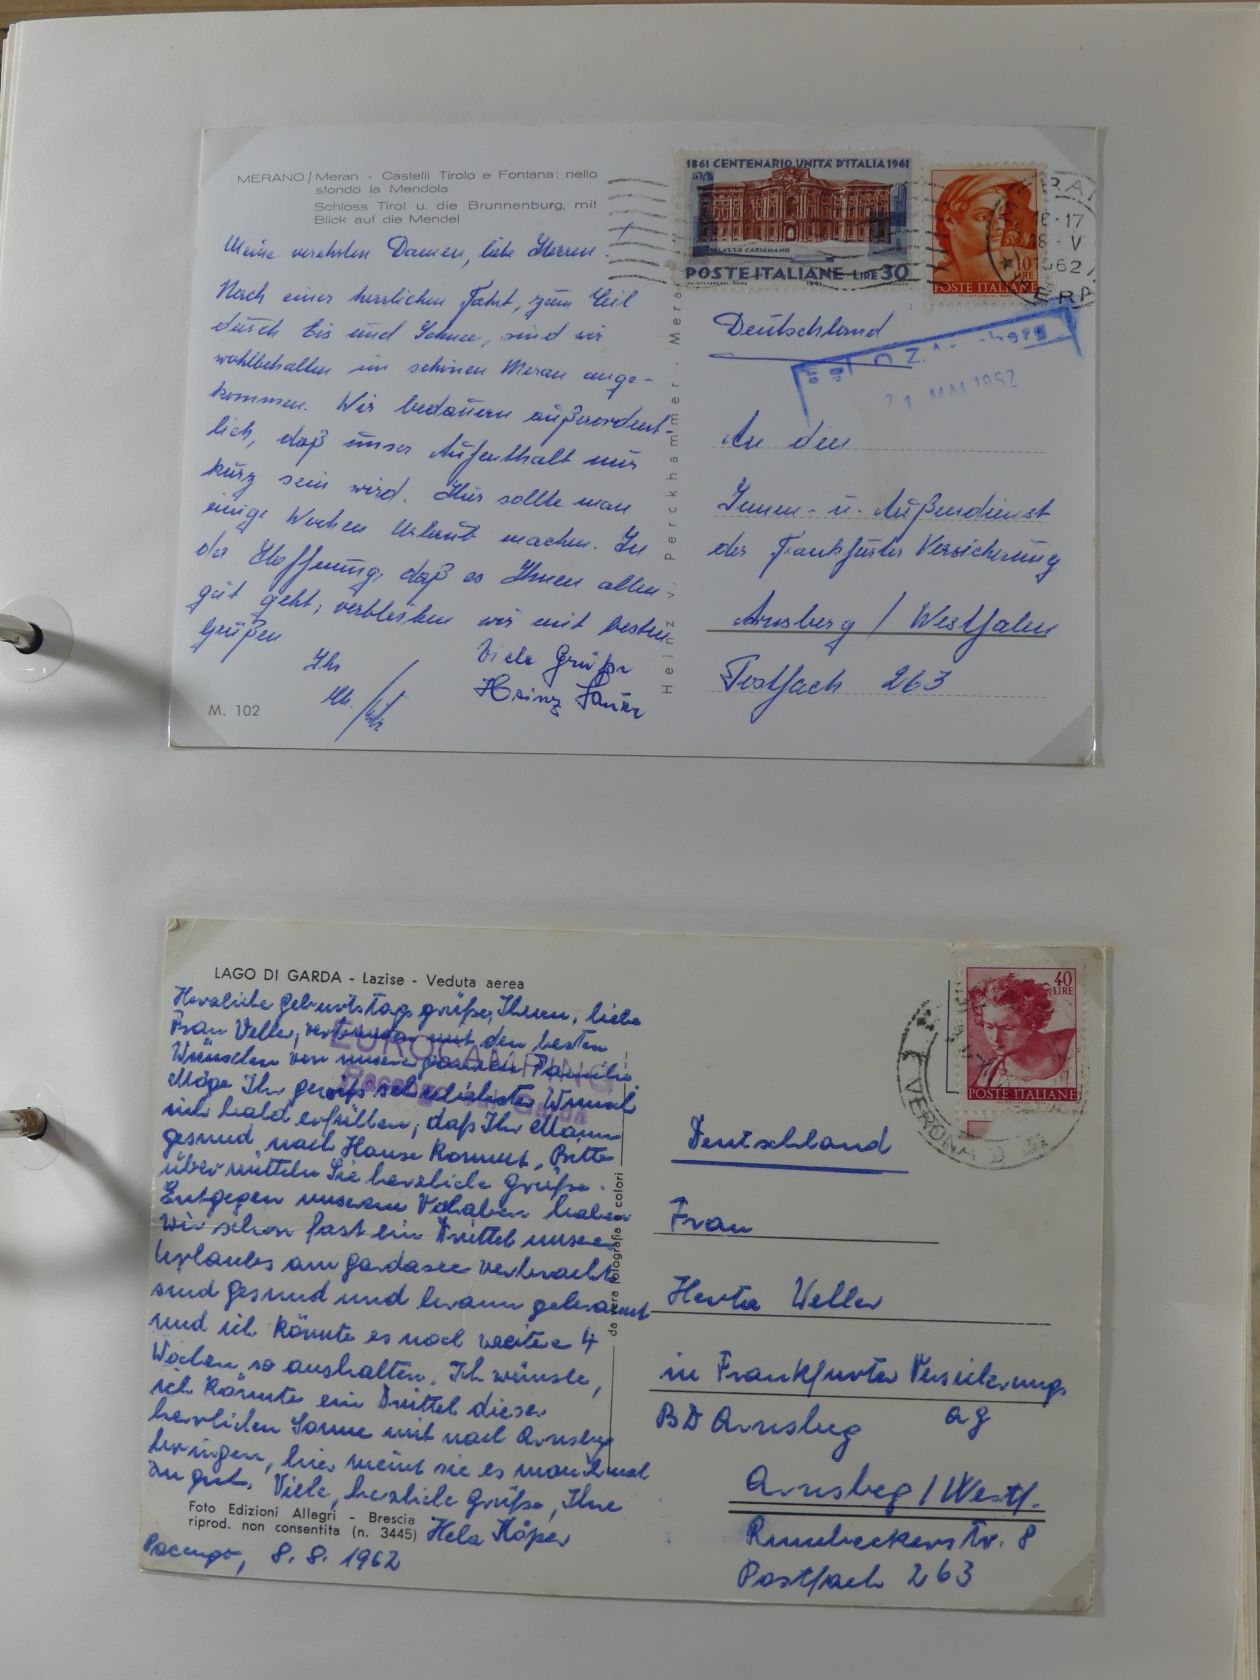 MERANO / Meran - Castelli Tirolo e Fontana: nello
sfondo la Mendola
Schloss Tirol u. die Brunnenburg, mit
Blick auf die Mendel
Meine verehrten Damen, liebe Herren!
Nach einer herrlichen Fahrt, zum Teil
durch Eis und Schnee, sind wir
wohlbehalten im schönen Meran ange-
kommen. Wir bedauern außerordent-
lich, daß unser Aufenthalt nur
kurz sein wird. Hier sollte man
einige Wochen Urlaub machen. In
der Hoffnung, daß es Ihnen allen
gut geht, verbleiben wir mit besten
Grüßen
Ihr
Viele Grüße
Heinz
M. 102
Heinz v. Perckhammer - Mera
1861 CENTENARIO UNITA D'ITALIA 1961
PALAZZO CARIGNANO
POSTE ITALIANE LIRE 30
1961
10
LIRE
POSTE ITALIANE
18-17
18-V
1962
Deutschland
21. MAI 1962
An den
Innen- u. Außendienst
der Frankfurter Versicherung
Arnsberg / Westfalen
Postfach 263
LAGO DI GARDA - Lazise - Veduta aerea
Herzliche Geburtstagsgrüße, Ihnen, liebe
Frau Weller, verbunden mit den besten
Wünschen von unserer ganzen Familie
Möge Ihr gewiß sehnlichster Wunsch
sich bald erfüllen, daß Ihr Mann
gesund nach Hause kommt, Bitte
übermitteln Sie herzliche Grüße.
Entgegen unserem Vorhaben haben
wir schon fast ein Drittel unseres
Urlaubes am Gardasee verbracht
sind gesund und braun gebrannt
und ich könnte es noch weitere 4
Wochen so aushalten. Ich wünsche,
ich könnte ein Drittel dieser
herrlichen Sonne mit nach Arnsberg
bringen, hier meint sie es manchmal
zu gut. Viele, herzliche Grüße, Ihre
Hela Köper
EUROCAMPING
Pacengo Garda
Foto Edizioni Allegri - Brescia
riprod. non consentita (n. 3445)
Pacengo, 8.8.1962
da vera fotografia a colori
40
LIRE
POSTE ITALIANE
VERONA
Deutschland
Frau
Herta Weller
in Frankfurter Versicherungs
AG
BD Arnsberg
Arnsberg / Westf.
Rumbeckerstr. 8
Postfach 263